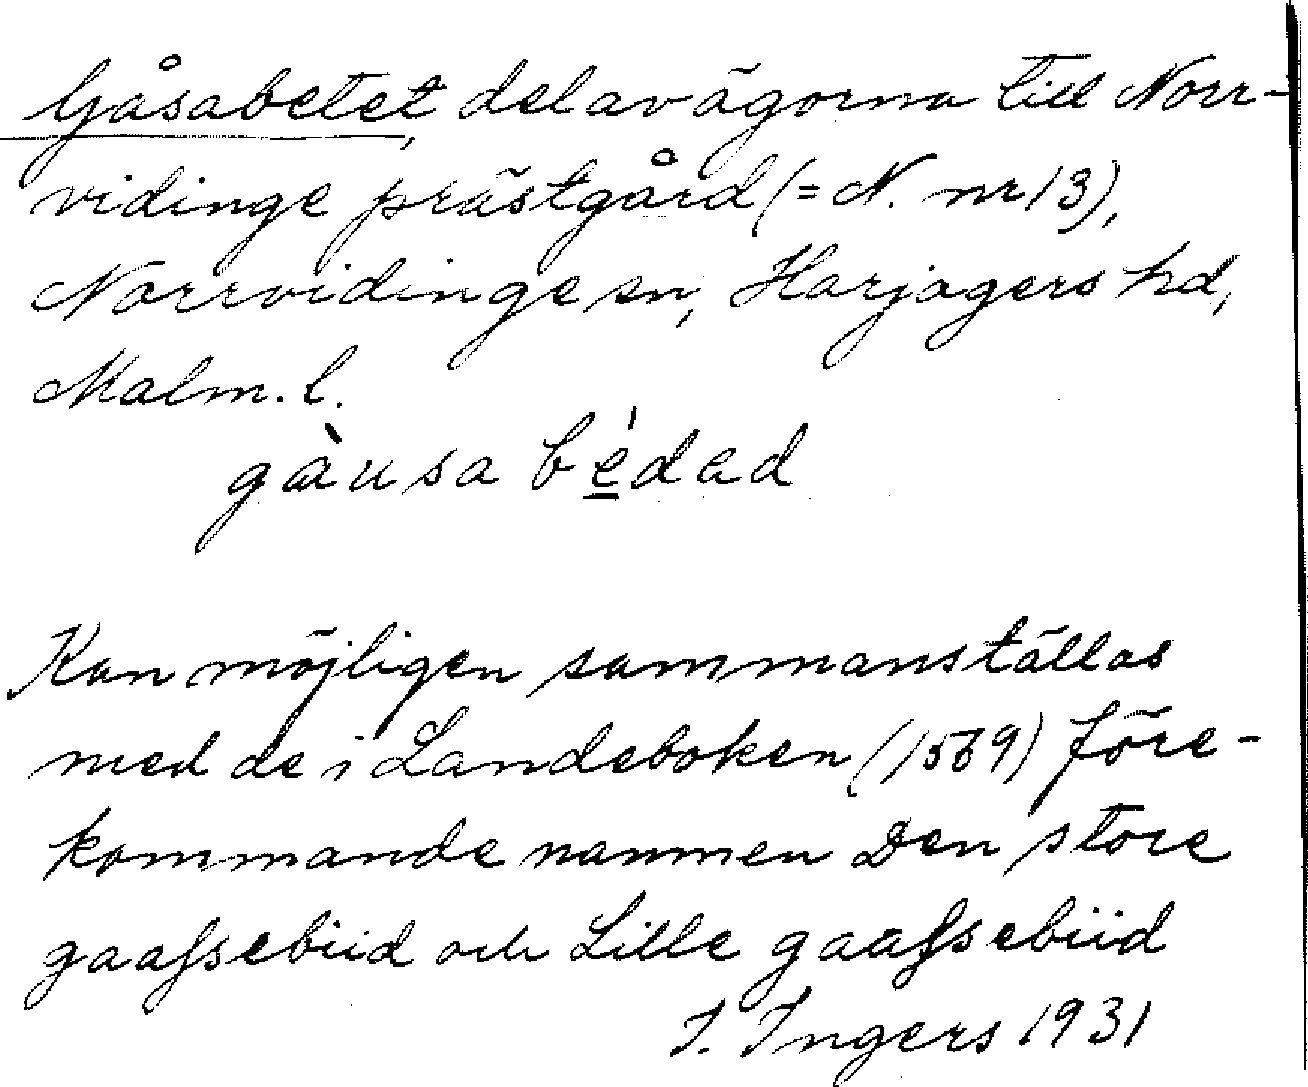 Gåsabetet, del av ägorna till Norr-
vidinge prästgård (= N. nr 13),
Norrvidinge sn, Harjagers hd,
Malm. l.
gàusa bédad
Kan möjligen sammanställas
med de i Landeboken (1569) före-
kommande namnen Den store
gaafsebiid och Lille gaafsebiid
I. Ingers 1931